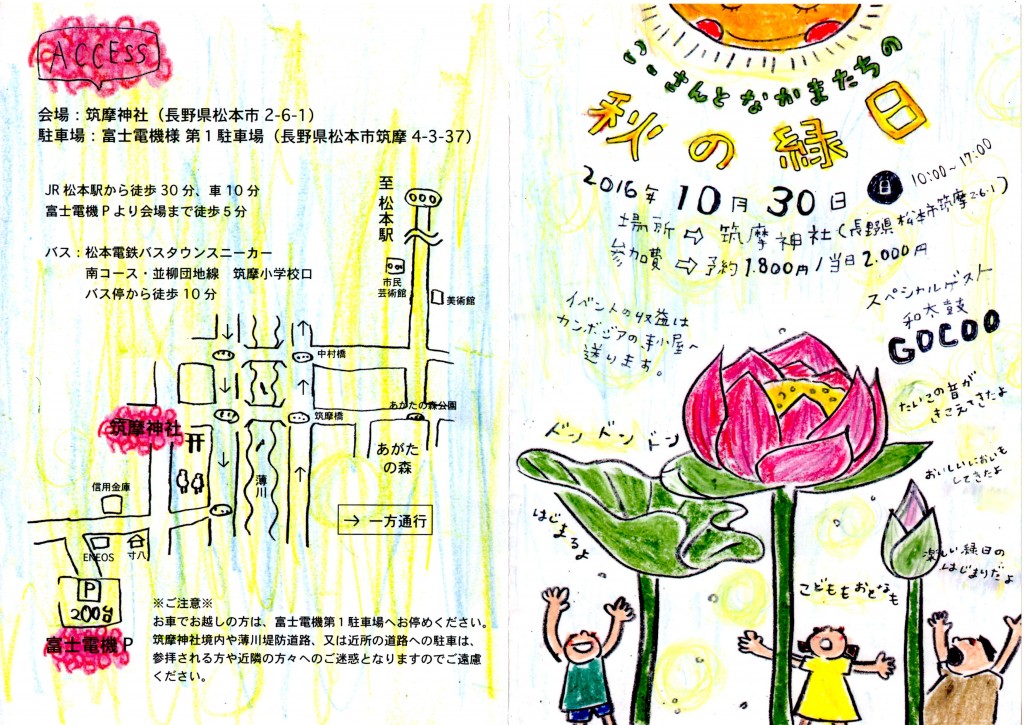 ACCESS
会場：筑摩神社（長野県松本市 2-6-1）
駐車場：富士電機様 第１駐車場（長野県松本市筑摩 4-3-37）
JR 松本駅から徒歩 30 分、車 10 分
富士電機 P より会場まで徒歩 5 分
バス：松本電鉄バスタウンスニーカー
南コース・並柳団地線　筑摩小学校口
バス停から徒歩 10 分
至 松本駅
市民
芸術館
美術館
中村橋
筑摩橋
あがたの森公園
あがた
の森
筑摩神社
薄川
信用金庫
→ 一方通行
ENEOS
寸八
P
200台
富士電機 P
※ご注意※
お車でお越しの方は、富士電機第１駐車場へお停めください。
筑摩神社境内や薄川堤防道路、又は近所の道路への駐車は、
参拝される方や近隣の方々へのご迷惑となりますのでご遠慮
ください。
いさんとなかまたちの
秋の縁日
2016年 10月 30日 日 10:00~17:00
場所 ⇨ 筑摩神社(長野県松本市筑摩2-6-1)
参加費 ⇨ 予約1.800円/当日2.000円
スペシャルゲスト
和太鼓
GOCOO
イベントの収益は
カンボジアの
送ります。
たいこの音が
きこえてきたよ
ドン ドン ドン
おいしいにおいも
してきたよ
はじ
まるよ
楽しい縁日の
はじまりだよ
こどももおとなも